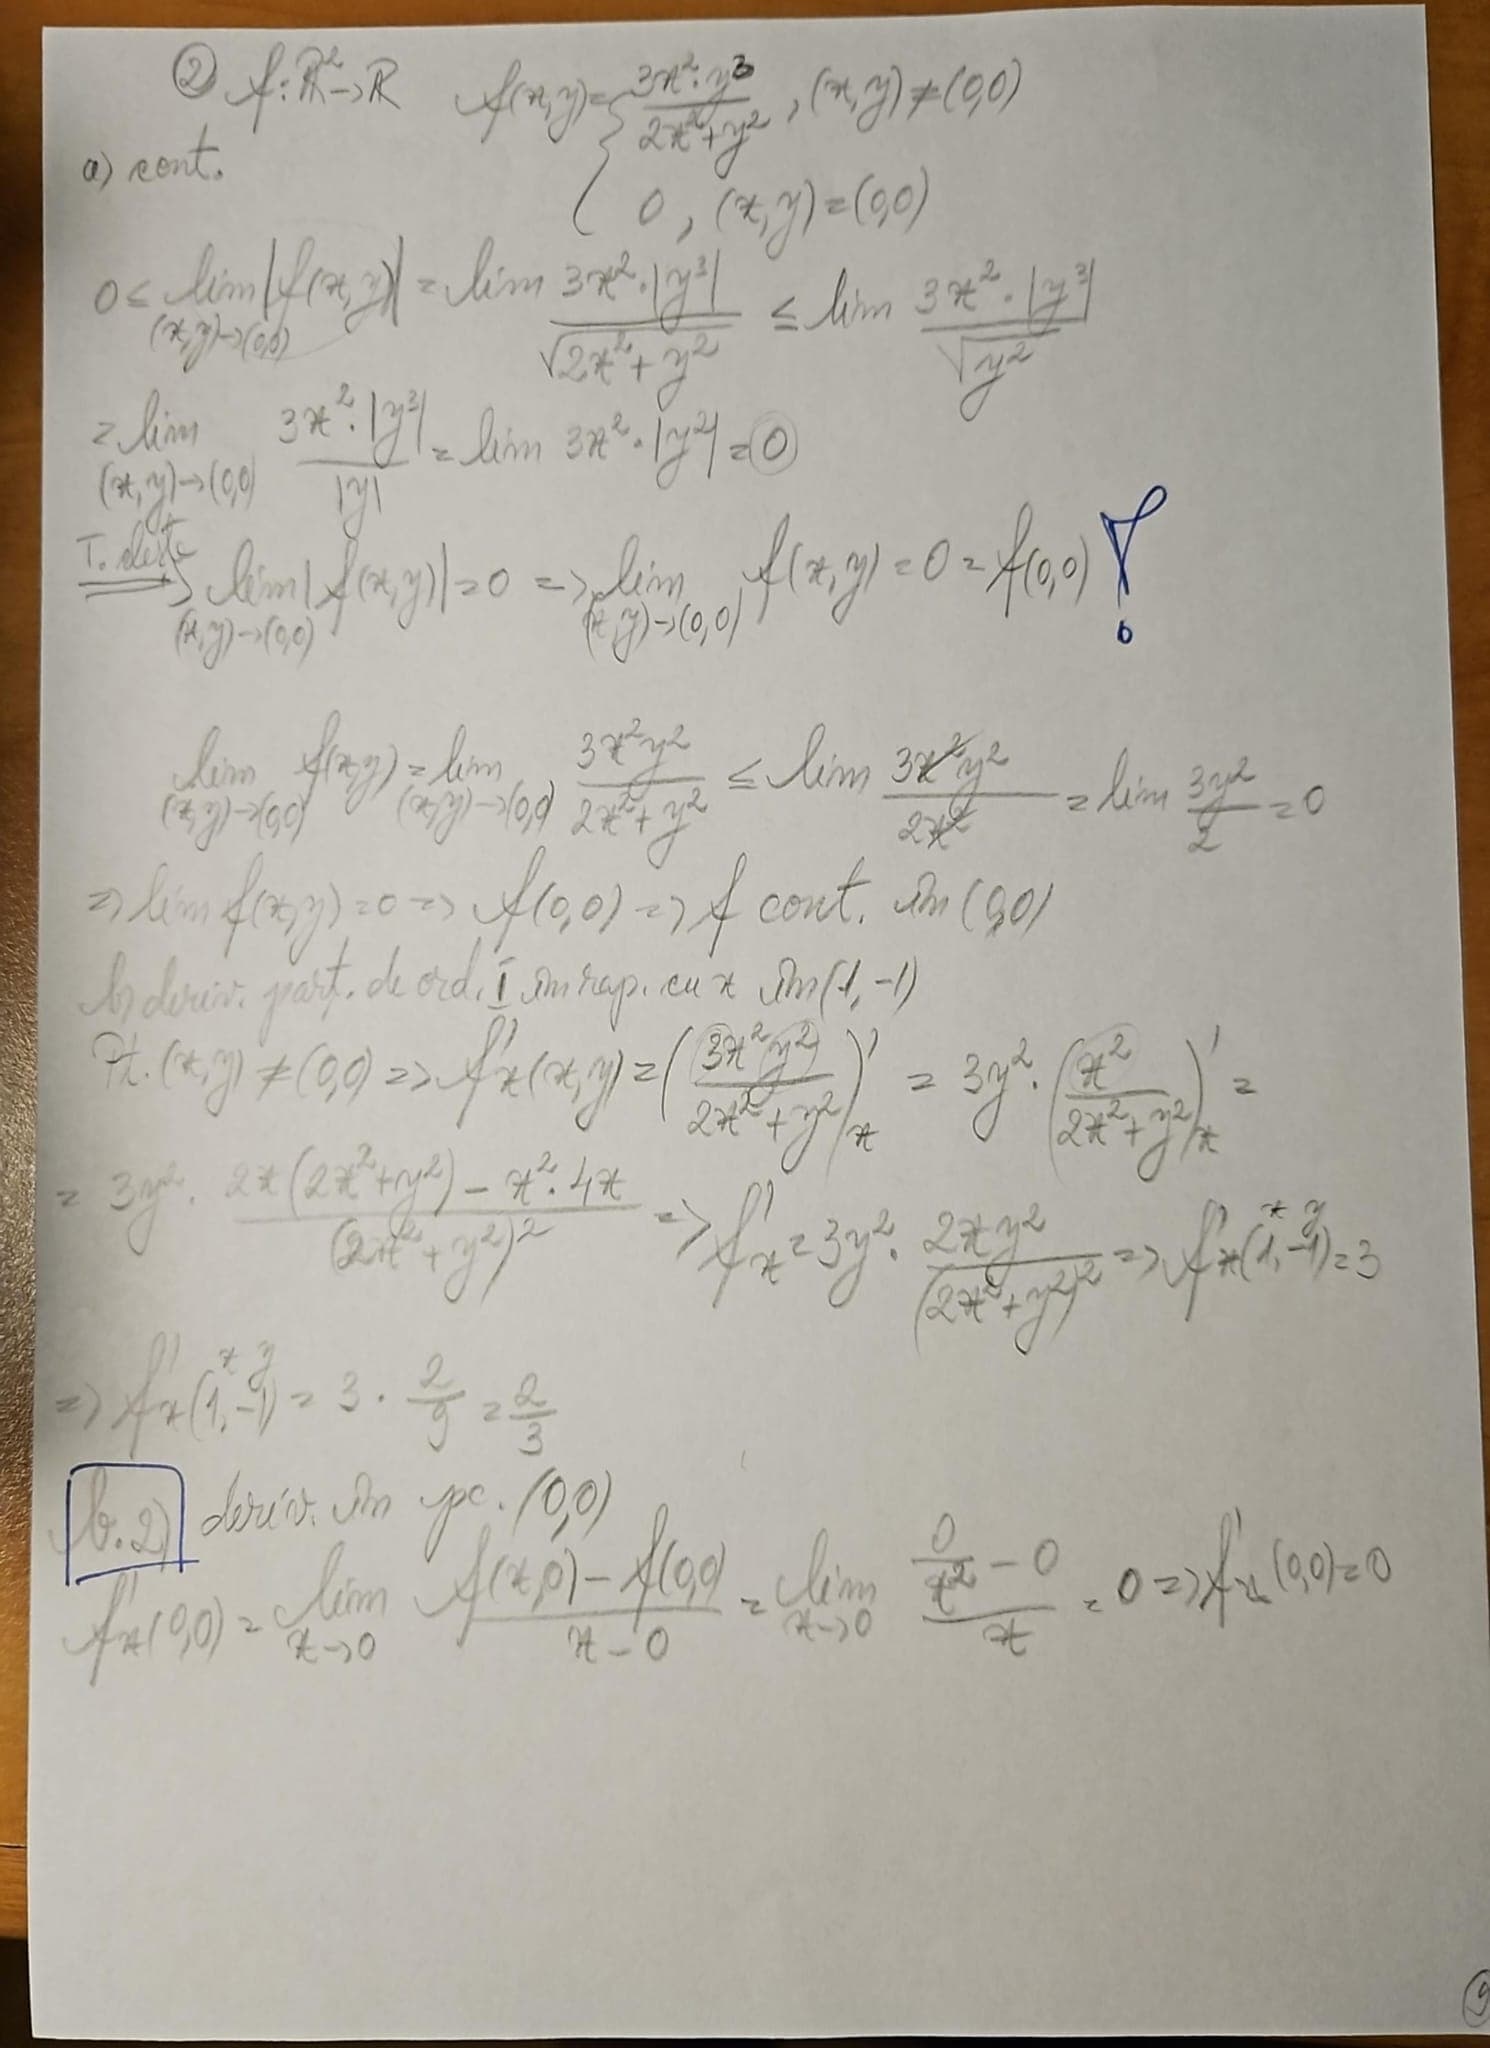 ② f: ℝ²→ℝ f(x,y)={ 3x²·y³/(2x²+y²), (x,y)≠(0,0)
a) cont. 0, (x,y)=(0,0)
0 ≤ lim_{(x,y)→(0,0)} |f(x,y)| = lim 3x²·|y³|/√(2x²+y²) ≤ lim 3x²·|y³|/√(y²)
= lim_{(x,y)→(0,0)} 3x²·|y³|/|y| = lim 3x²·|y²| = 0
T. clește ⇒ lim_{(x,y)→(0,0)} |f(x,y)| = 0 => lim_{(x,y)→(0,0)} f(x,y) = 0 = f(0,0) !
lim_{(x,y)→(0,0)} f(x,y) = lim_{(x,y)→(0,0)} 3x²y²/(2x²+y²) ≤ lim 3x²y²/2x² = lim 3y²/2 = 0
=> lim f(x,y) = 0 => f(0,0) => f cont. în (0,0)
b) deriv. part. de ord. I în rap. cu x în (1,-1)
Pt. (x,y) ≠ (0,0) => f'x(x,y) = (3x²y²/(2x²+y²))'x = 3y²·(x²/(2x²+y²))'x =
= 3y²· (2x(2x²+y²) - x²·4x)/(2x²+y²)² => f'x = 3y²· 2xy²/(2x²+y²)² => f'x(1,-1) = 3
x y
=> f'x(1,-1) = 3 · 2/9 = 2/3
x y
b.2) deriv. în pc. (0,0)
f'x(0,0) = lim_{x→0} (f(x,0) - f(0,0))/(x-0) = lim_{x→0} (0/x² - 0)/x = 0 => f'x(0,0) = 0
9